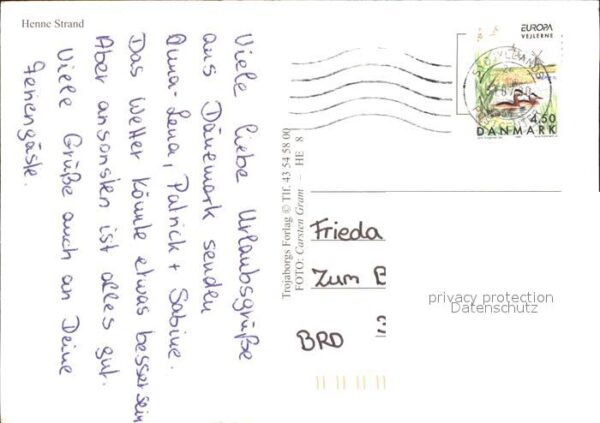 Henne Strand
Viele liebe Urlaubsgrüße
aus Dänemark senden
Oma-Lena, Patrick + Sabine.
Das Wetter könnte etwas besser sein
Aber ansonsten ist alles gut.
Viele Grüße auch an Deine
Feriengäste.
Trojaborgs Forlag © Tlf. 43 54 58 00
FOTO: Carsten Gram – HE 8
EUROPA
VEJLERNE
4,50
DANMARK
Frieda
Zum B
BRD
privacy protection
Datenschutz